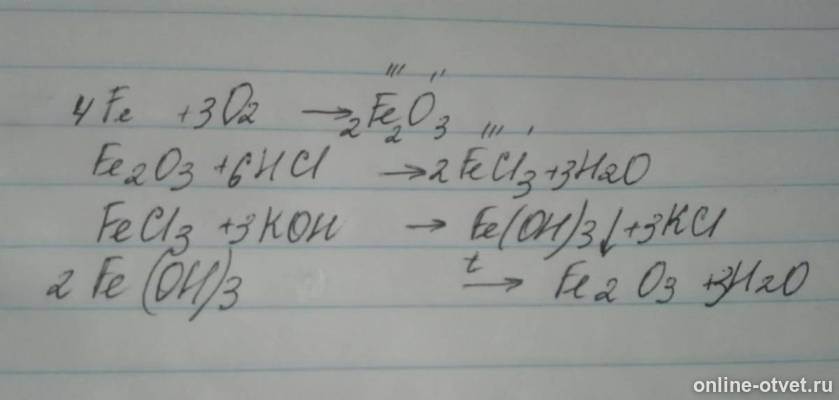 4Fe + 3O2 → 2Fe2O3
Fe2O3 + 6HCl → 2FeCl3 + 3H2O
FeCl3 + 3KOH → Fe(OH)3↓ + 3KCl
2Fe(OH)3 t→ Fe2O3 + 3H2O
online-otvet.ru